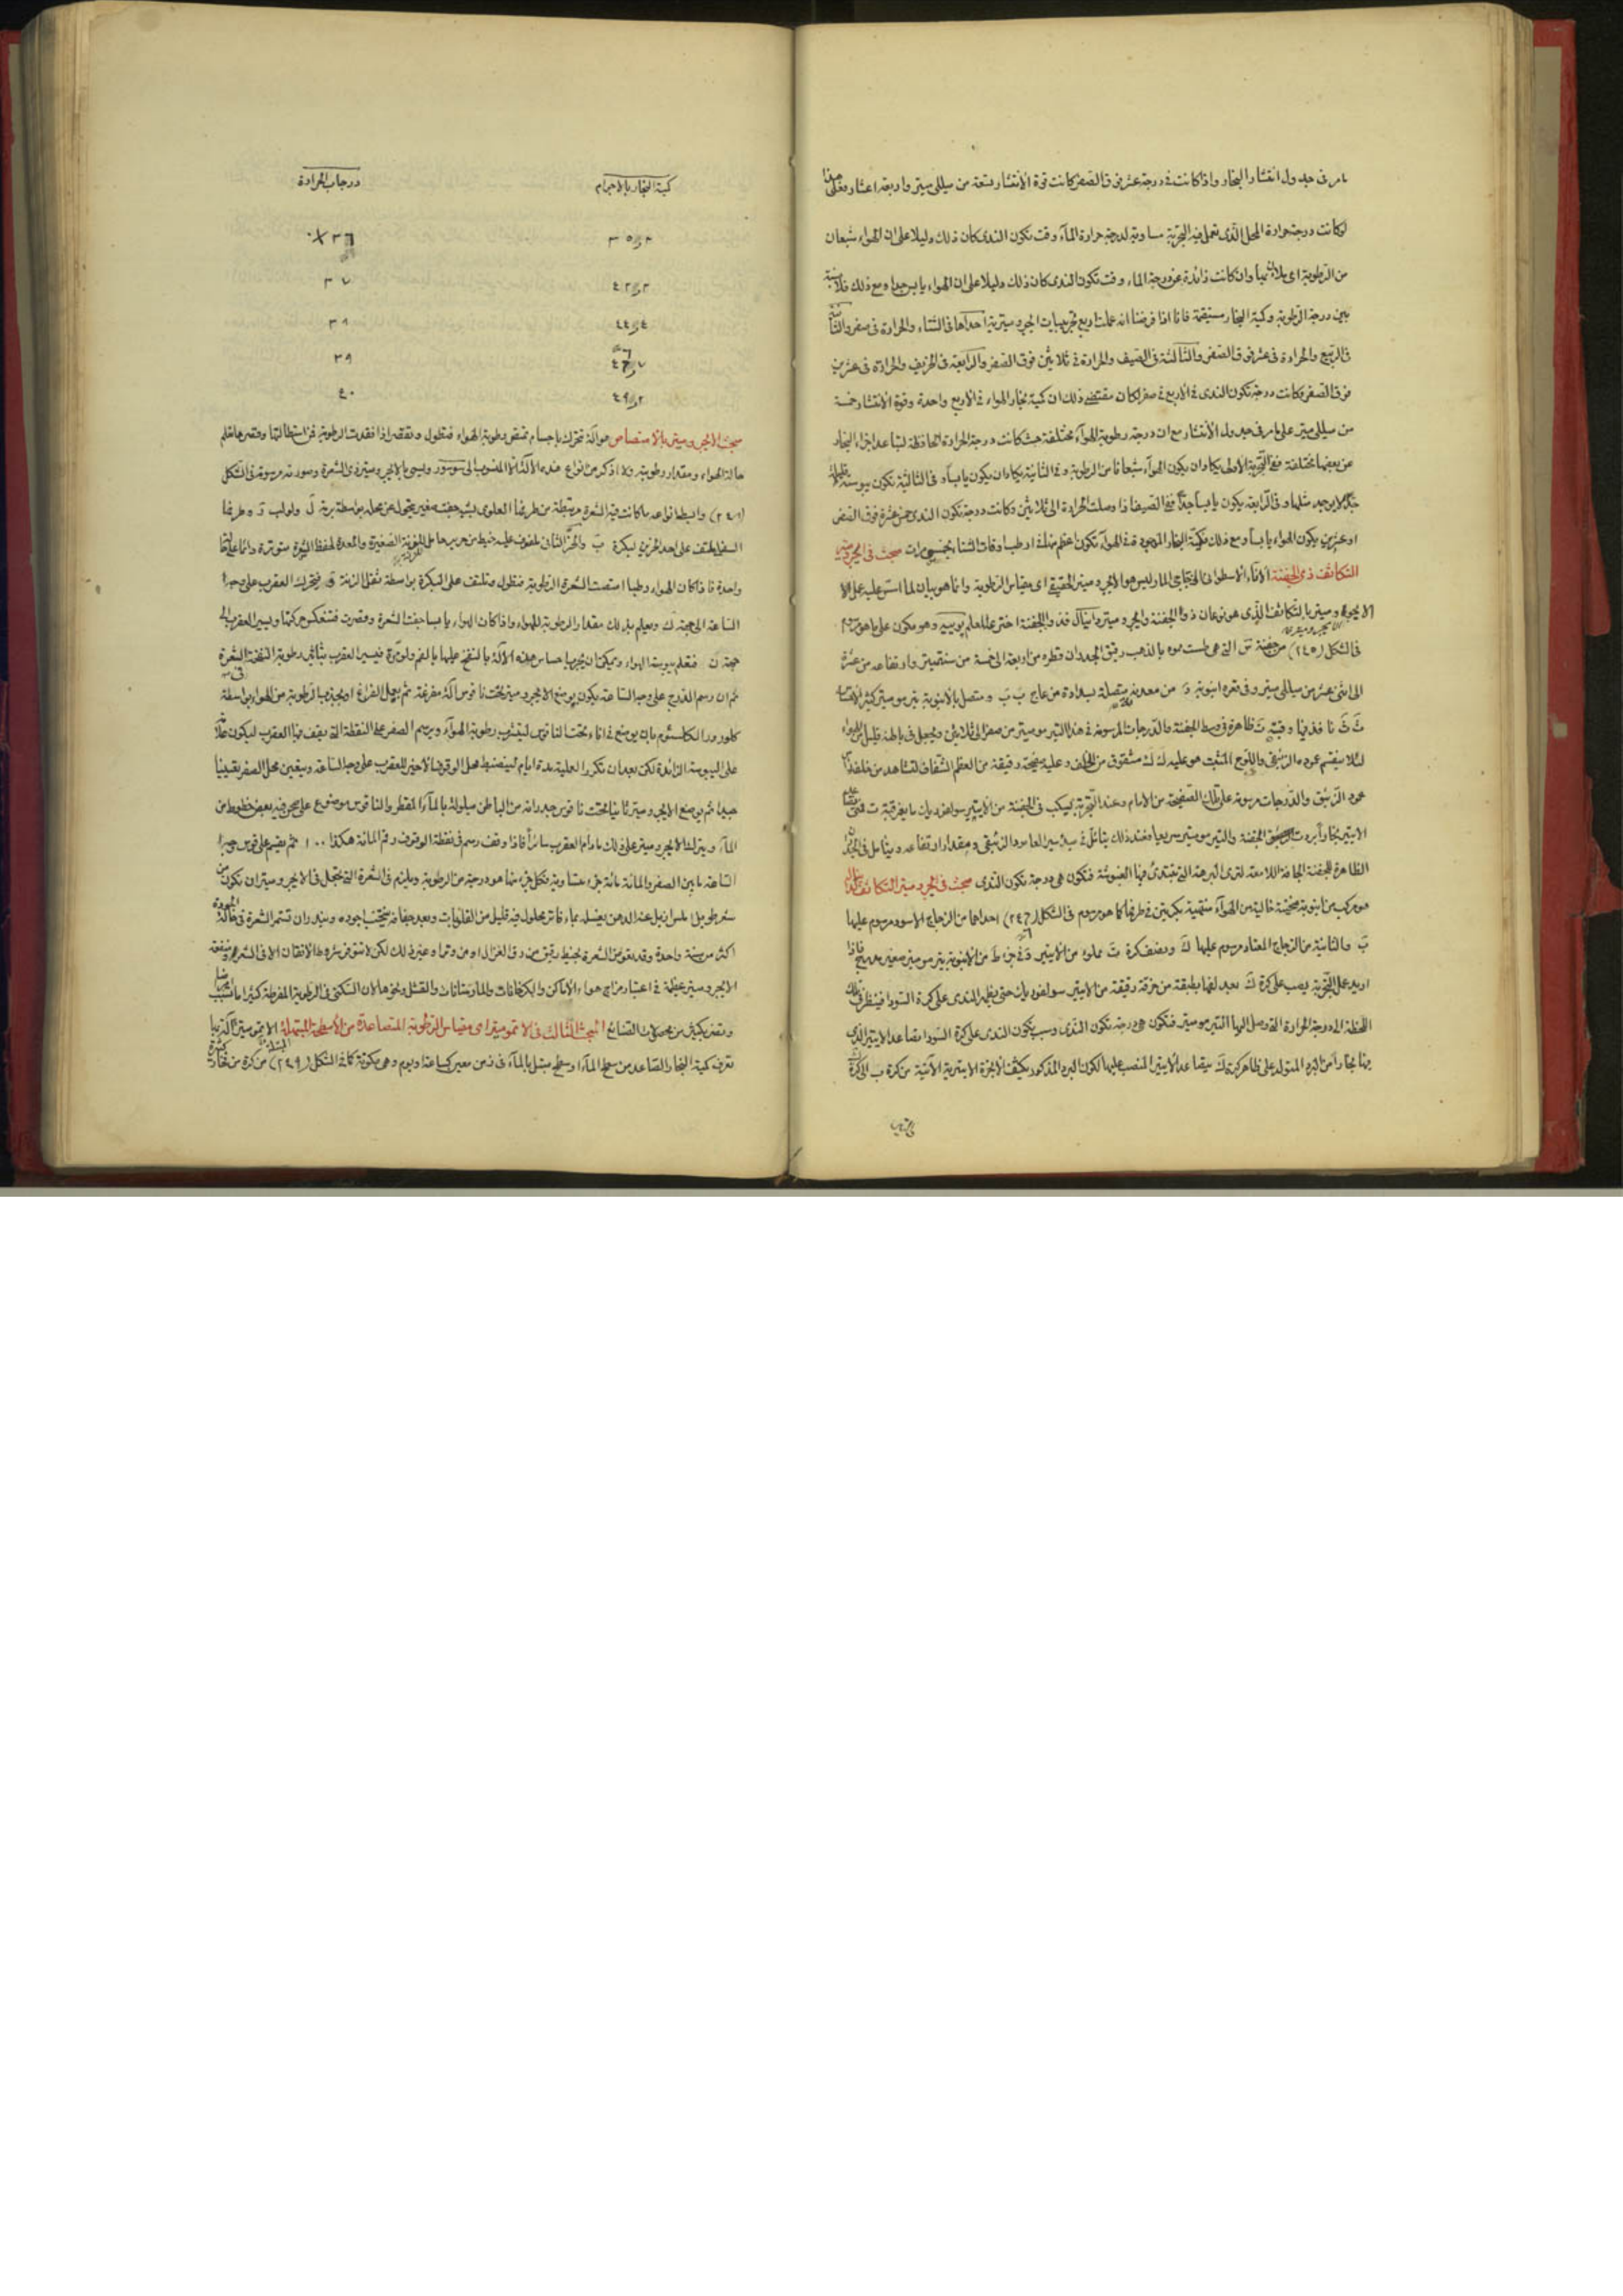 مامر فى جدول انتشار البخار واذا كانت فى درجة عشر فوق الصفر كانت قوة الانتشار تسعة من ميللى ميتر واربعة اعشار فعلى هذا
لوكانت درجة حرارة المحل الذى تعمل فيه التجربة مساوية لدرجة حرارة المآء وقت تكون الندى كان ذلك دليلا على ان الهواء شبعان
من الرطوبة اى ملآن بها وان كانت زائدة عن درجة الماء وقت تكون الندى كان ذلك دليلا على ان الهواء يابس جدا ومع ذلك فلا نسبة
بين درجة الرطوبة وكمية البخار مستقيمة فانا اذا فرضنا انه عملت اربع تجربيات ايجروميترية احداها فى الشتاء والحرارة فى صفر والثانية
فى الربيع والحرارة فى عشر فوق الصفر والثالثة فى الصيف والحرارة فى ثلاثين فوق الصفر والرابعة فى الخريف والحرارة فى عشرين
فوق الصفر وكانت درجة تكون الندى فى الاربع فى صفر لكان مقتضى ذلك ان كمية بخار الهواء فى الاربع واحدة وقوة الانتشار خمسة
من ميللى ميتر على مامر فى جدول الانتشار مع ان درجة رطوبة الهوآء مختلفة حيث كانت درجة الحرارة الحافظة لتباعد اجزاء البخار
عن بعضها مختلفة ففى التجربة الاولى يكاد ان يكون الهوآء شبعانا من الرطوبة وفى الثانية يكاد ان يكون يابساً وفى الثالثة تكون يبوسته
جدًا لا يوجد مثلها وفى الرابعة يكون يابسا جداً ففى الصيف اذا وصلت الحرارة الى ثلاثين وكانت درجة تكون الندى خمس عشرة فوق الصفر
او عشرين يكون الهواء يابسا ومع ذلك فكمية البخار الموجود فى الهوآء تكون اعظم منها فى ارطب اوقات الشتا بخمس مرات مبحث فى الايجروميتر
التكاثف ذى الجفنة الاناء الاسطوانى الزجاجى المار ليس هو الايجروميتر الحقيقى اى مقياس الرطوبة وانما هو بيان لما استرعليه عمل الا
الايجروميتر بالتكاثف الذى هو نوعان ذوالجفنة وايجروميتر دانيال فذو الجفنة اخترعه المعلم بوييه وهو مكون على ماهو مرسوم
فى الشكل (٢٤٥) من جفنة سَ التى هى طست مموه بالذهب رقيق الجدران قطره من اربعة الى خمسة من سنتميتر وارتفاعه من عشرة
الى اثنى عشر من ميللى ميتر وفى قعره انبوبة دَ من معدن متصلة بسدادة من عاج بَ بَ ومتصل بالانبوبة تيرموميتر كثير الاقسام
ثَ ثَ نافذ فيها وقبته تَ ظاهرة فى وسط الجفنة والدرجات المرسومة فى هذا التيرموميتر من صفر الى ثلاثين ويجعل فى باطنه قليل من الهواء
لئلا ينقسم عموده الزئبقى واللوح المثبت هو عليه كَ كَ مشقوق من الخلف وعليه صفيحة رقيقة من العظم الشفاف لتشاهد من خلفها
عمود الزئبق والدرجات مرسومة على تلك الصفيحة من الامام وعند التجربة يسكب فى الجفنة من الايتير سولفوريك مايغرق قبة ت فمتى
الايتير بخارا برد الجفنة والتيرموميتر سريعا فعند ذلك يتأمل فى سير العامود الزئبقى ومقدار ارتفاعه ويتأمل فى
الظاهرة للجفنة الجافة اللامعة لترى البرهة التى تبتدئ فيها العتومة فتكون هى درجة تكون الندى مبحث فى ايجروميتر التكاثف
هو مركب من انبوبة منحنية خالية من الهوآء منتهية بكرتين فى طرفيها كما هو مرسوم فى الشكل (٢٤٦) احداهما من الزجاج الاسود مرسوم عليها
بَ والثانية من الزجاج المعتاد مرسوم عليها كَ ونصف كرة بَ مملوء من الايتير وفى جزء طَ من الانبوبة تيرموميتر صغير فاذا
اريد عمل التجربة يصب على كرة كَ بعد لفها بطبقة من خرقة رقيقة من الايتير سولفوريك حتى يظهر الندى على كرة السودا فينظر فى تلك
اللحظة الى درجة الحرارة التى وصل اليها التيرموميتر فتكون هى درجة تكون الندى وسبب تكون الندى على كرة السودا تصاعد الايتير الذى
فيها بخاراً من البرد المتولد على ظاهر كرة كَ بتصاعد الايتير المنصب عليها لكون البرد المذكور يكثف الابخرة الايتيرية الآتية من كرة ب الى كرة
كمية البخار بالاجرام درجات الحرارة
٣٦
٤٢٫٣ ٣٧
٤٤٫٤ ٣٨
٤٦٫٧ ٣٩
٤٩٫٢ ٤٠
مبحث الايجروميتر بالامتصاص هو آلة تتحرك باجسام تمتص رطوبة الهواء فتطول وتقصر اذا فقدت الرطوبة فمن استطالتها وقصرها تعلم
حالة الهواء ومقدار رطوبته ولا اذكر من انواع هذه الآلة الا المنسوب الى سوسور ويسمى بالايجروميتر ذى الشعرة وصورته مرسومة فى الشكل
(٢٤٨) وابسط انواعه ما كانت فيه الشعرة مرتبطة من طرفها العلوى بشئ صغير يتحول عن محله بواسطة برمة لَ ولولب ده وطرفها
السفلى ملتف على احد الحزين لبكرة بَ والحز الثانى ملفوف عليه خيط من حرير حامل لموزنة الصغيرة والمعدة لحفظ الشعرة متوترة دائما على حالة
واحدة فاذا كان الهواء رطبا امتصت الشعرة الرطوبة فتطول وتلتف على البكرة بواسطة ثقل الزنة ق فيتحرك العقرب على وجه
الساعة الى جهة ك ويعلم بذلك مقدار الرطوبة للهواء واذا كان الهواء يابسا جفت الشعرة وقصرت فتنعكس حركتها ويسير العقرب الى
جهة نَ فتعلم يبوسة الهواء ويمكن ان يجرب احساس هذه الآلة بالنفخ عليها بالفم ولو مرة فيسير العقرب بتأثير رطوبة النفخة فى الشعرة
ثم ان رسم المدرج على وجه الساعة يكون بوضع الايجروميتر تحت ناقوس آلة مفرغة ثم يعمل الفراغ او يجذب الرطوبة من الهواء بواسطة
كلورورالكالسيوم بان يوضع فى اناء تحت الناقوس ليشرب رطوبة الهوآء ويرسم الصفر على النقطة التى يقف فيها العقرب ليكون علامة
على اليبوسة الزائدة لكن بعد ان تكرر العملية مدة ايام لينضبط محل الوقوف الاخير للعقرب على وجه الساعة ويتعين محل الصفر تعيينا
جيدا ثم يوضع الايجروميتر ثانيا تحت ناقوس جدرانه من الباطن مبلولة بالمآء المقطر والناقوس موضوع على صحن فيه بعض خطوط من
المآء ويترك الايجروميتر على ذلك مادام العقرب سائرا فاذا وقف رسم فى نقطة الوقوف رقم المائة هكذا ١٠٠ ثم تقسم على قوس وجه
الساعة مابين الصفر والمائة مائة جزء متساوية فكل جزء منها هو درجة من الرطوبة ويلزم فى الشعرة التى تجعل فى الايجروميتر ان تكون من
شعر طويل املس ازيل عنه الدهن بغسله بماء فاتر محلول فيه قليل من القلويات وبعد جفافه ينتخب اجوده ويندر ان تستمر الشعرة فى حالة الجودة
اكثر من سنة واحدة وقد تعوض الشعرة بخيط رقيق من او غير ذلك لكن لا تتوفر شروط الاتقان الا فى الشعر ومنفعة
الايجروميتر عظيمة فى اعتبار مزاج هواء الاماكن والكرخانات والمارستانات والقشل ونحوها لان السكنى فى الرطوبة المفرطة كثيرا ما تسبب
وتضر بكثير من محصولات الصنائع المبحث الثالث فى الاتموميتر اى مقياس الرطوبة المتصاعدة من الاسطحة المبتلة الاتموميتر آلة بها
تعرف كمية البخار المتصاعد من سطح المآء او سطح مبتل بالمآء فى زمن معين كساعة او يوم وهى مكونة كما فى الشكل (٢٤٩) من كرة من فخار